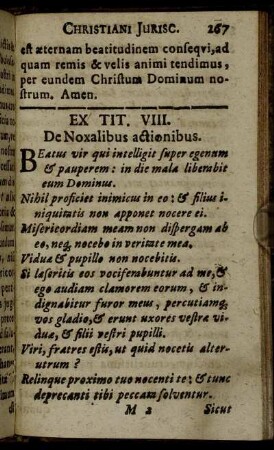 CHRISTIANI JURISC. 267
est æternam beatitudinem conseqvi, ad
quam remis & velis animi tendimus,
per eundem Christum Dominum no-
strum. Amen.
EX TIT. VIII.
De Noxalibus actionibus.
BEatus vir qui intelligit super egenum
& pauperem: in die mala liberabit
eum Dominus.
Nihil proficiet inimicus in eo: & filius i-
niquitatis non apponet nocere ei.
Misericordiam meam non dispergam ab
eo, neq; nocebo in veritate mea.
Viduæ & pupillo non nocebitis.
Si læseritis eos vociferabuntur ad me, &
ego audiam clamorem eorum, & in-
dignabitur furor meus, percutiamq;
vos gladio, & erunt uxores vestræ vi-
duæ, & filii vestri pupilli.
Viri, fratres estis, ut quid nocetis alter-
utrum?
Relinque proximo tuo nocenti te: & tunc
deprecanti tibi peccata solventur.
M 2 Sicut